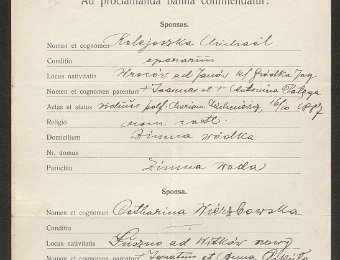 Ad proclamanda banna commendatur:
Sponsus.
Nomen et cognomen Kolejoszka Michaël
Conditio operarius
Locus nativitatis ad Janów k/ Gródka Jag.
Nomen et cognomen parentum + Joannes et + Antonina
Aetas et status viduus post Mariam 16/10 1897
Religio rom. cath.
Domicilium Zimna wódka
Nr. domus
Parochia Zimna woda
Sponsa.
Nomen et cognomen Catharina Wierzbowska
Conditio
Locus nativitatis ad Witków nowy
Nomen et cognomen parentum + Ignatius et + Anna